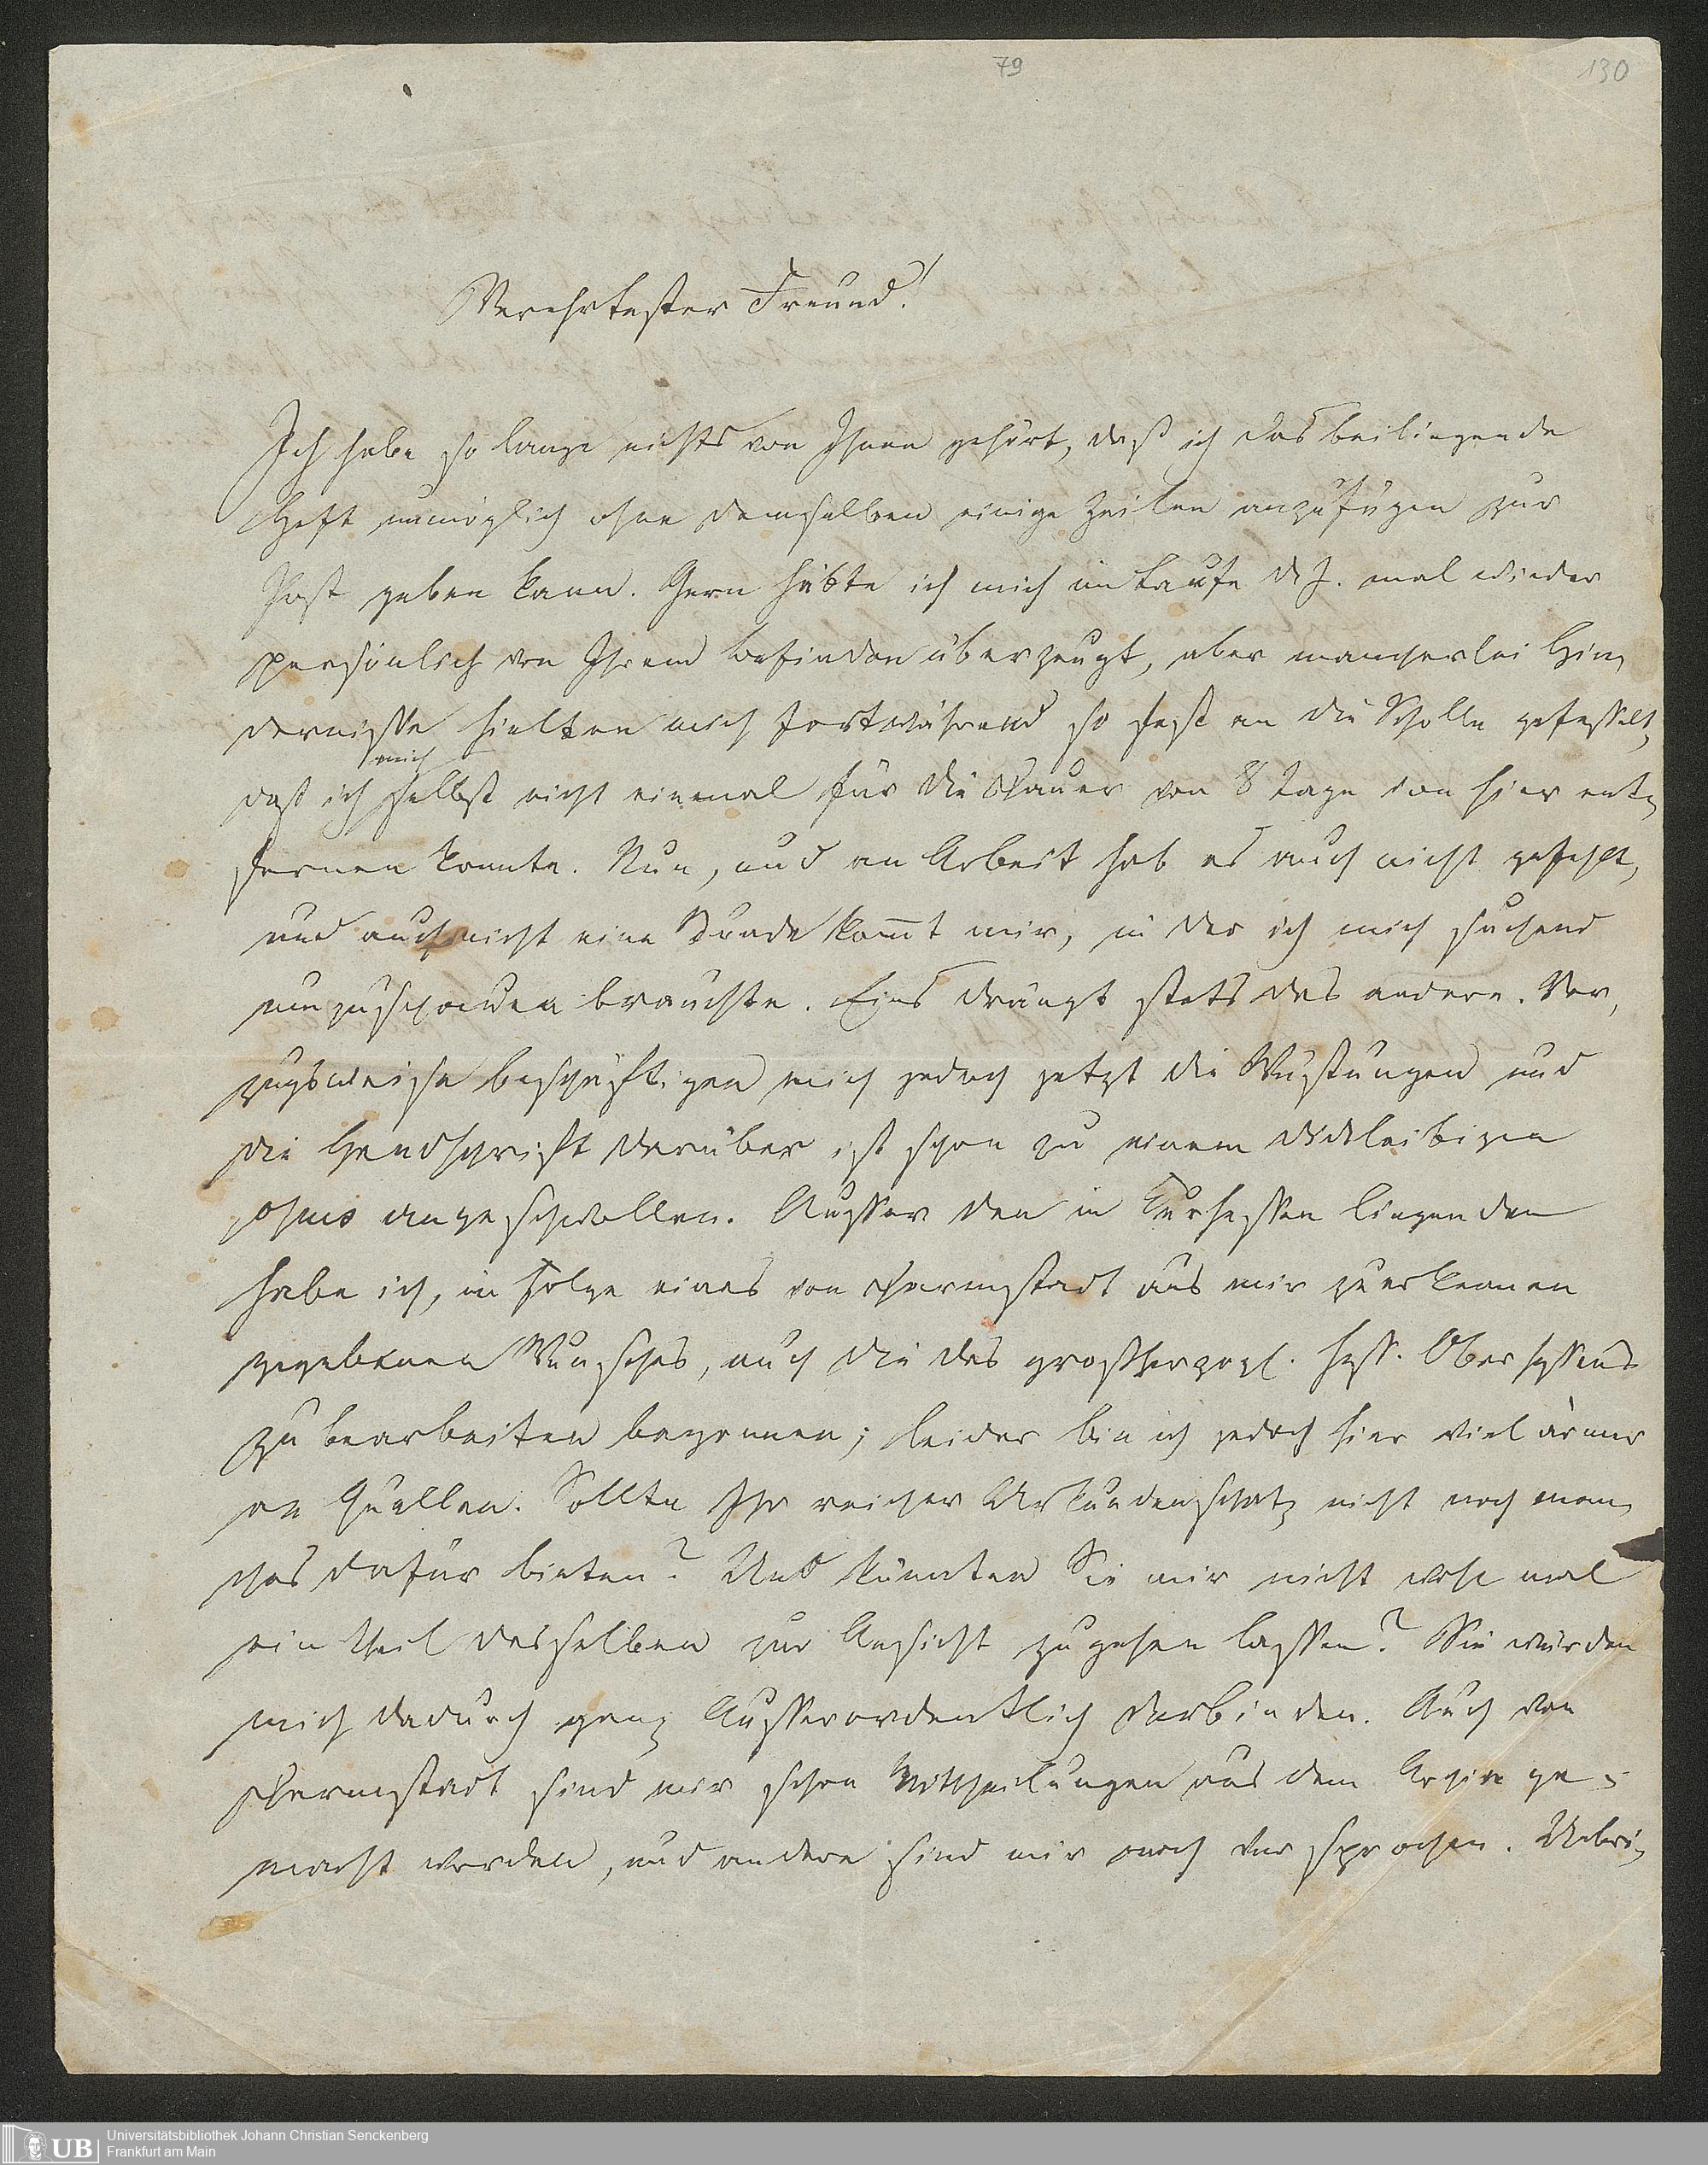 79
130
Verehrtester Freund!
Ich habe so lange nichts von Ihnen gehört, daß ich das beiliegende
Heft unmöglich ohne demselben einige Zeilen anzufügen zur
Post geben kann. Gern hätte ich mich im Laufe d. J. mal wieder
persönlich von Ihrem Befinden überzeugt, aber mancherlei Hin-
dernisse hielten mich fortwährend so fest an die Scholle gefesselt,
mich
daß ich selbst nicht einmal für die Dauer von 8 Tage von hier ent-
fernen konnte. Nun, und an Arbeit hat es auch nicht gefehlt,
und auch nicht eine Stunde kom̅t mir, in der ich mich suchend
umzuschauen brauchte. Eins drängt stets das andere. Vor-
zugsweise beschäftigen mich jedoch jetzt die Wüstungen und
die Handschrift darüber ist schon zu einem dickleibigen
opus angeschwollen. Ausser den in Kurhessen liegenden
habe ich, in Folge eines von Darmstadt aus mir zu erkennen
gegebenen Wunsches, auch die des grossherzogl. hess. Oberhessens
zu bearbeiten begonnen; leider bin ich jedoch hier viel ärmer
an Quellen. Sollte Ihr reicher Urkundenschatz nicht noch man-
ches dafür bieten? Und könnten Sie mir nicht wohl mal
ein Theil desselben zur Ansicht zugehen lassen? Sie würden
mich dadurch ganz Ausserordentlich verbinden. Auch von
Darmstadt sind mir schon Mittheilungen aus dem Archive ge-
macht worden, und andere sind mir noch versprochen. Uebri-
UB
Universitätsbibliothek Johann Christian Senckenberg
Frankfurt am Main